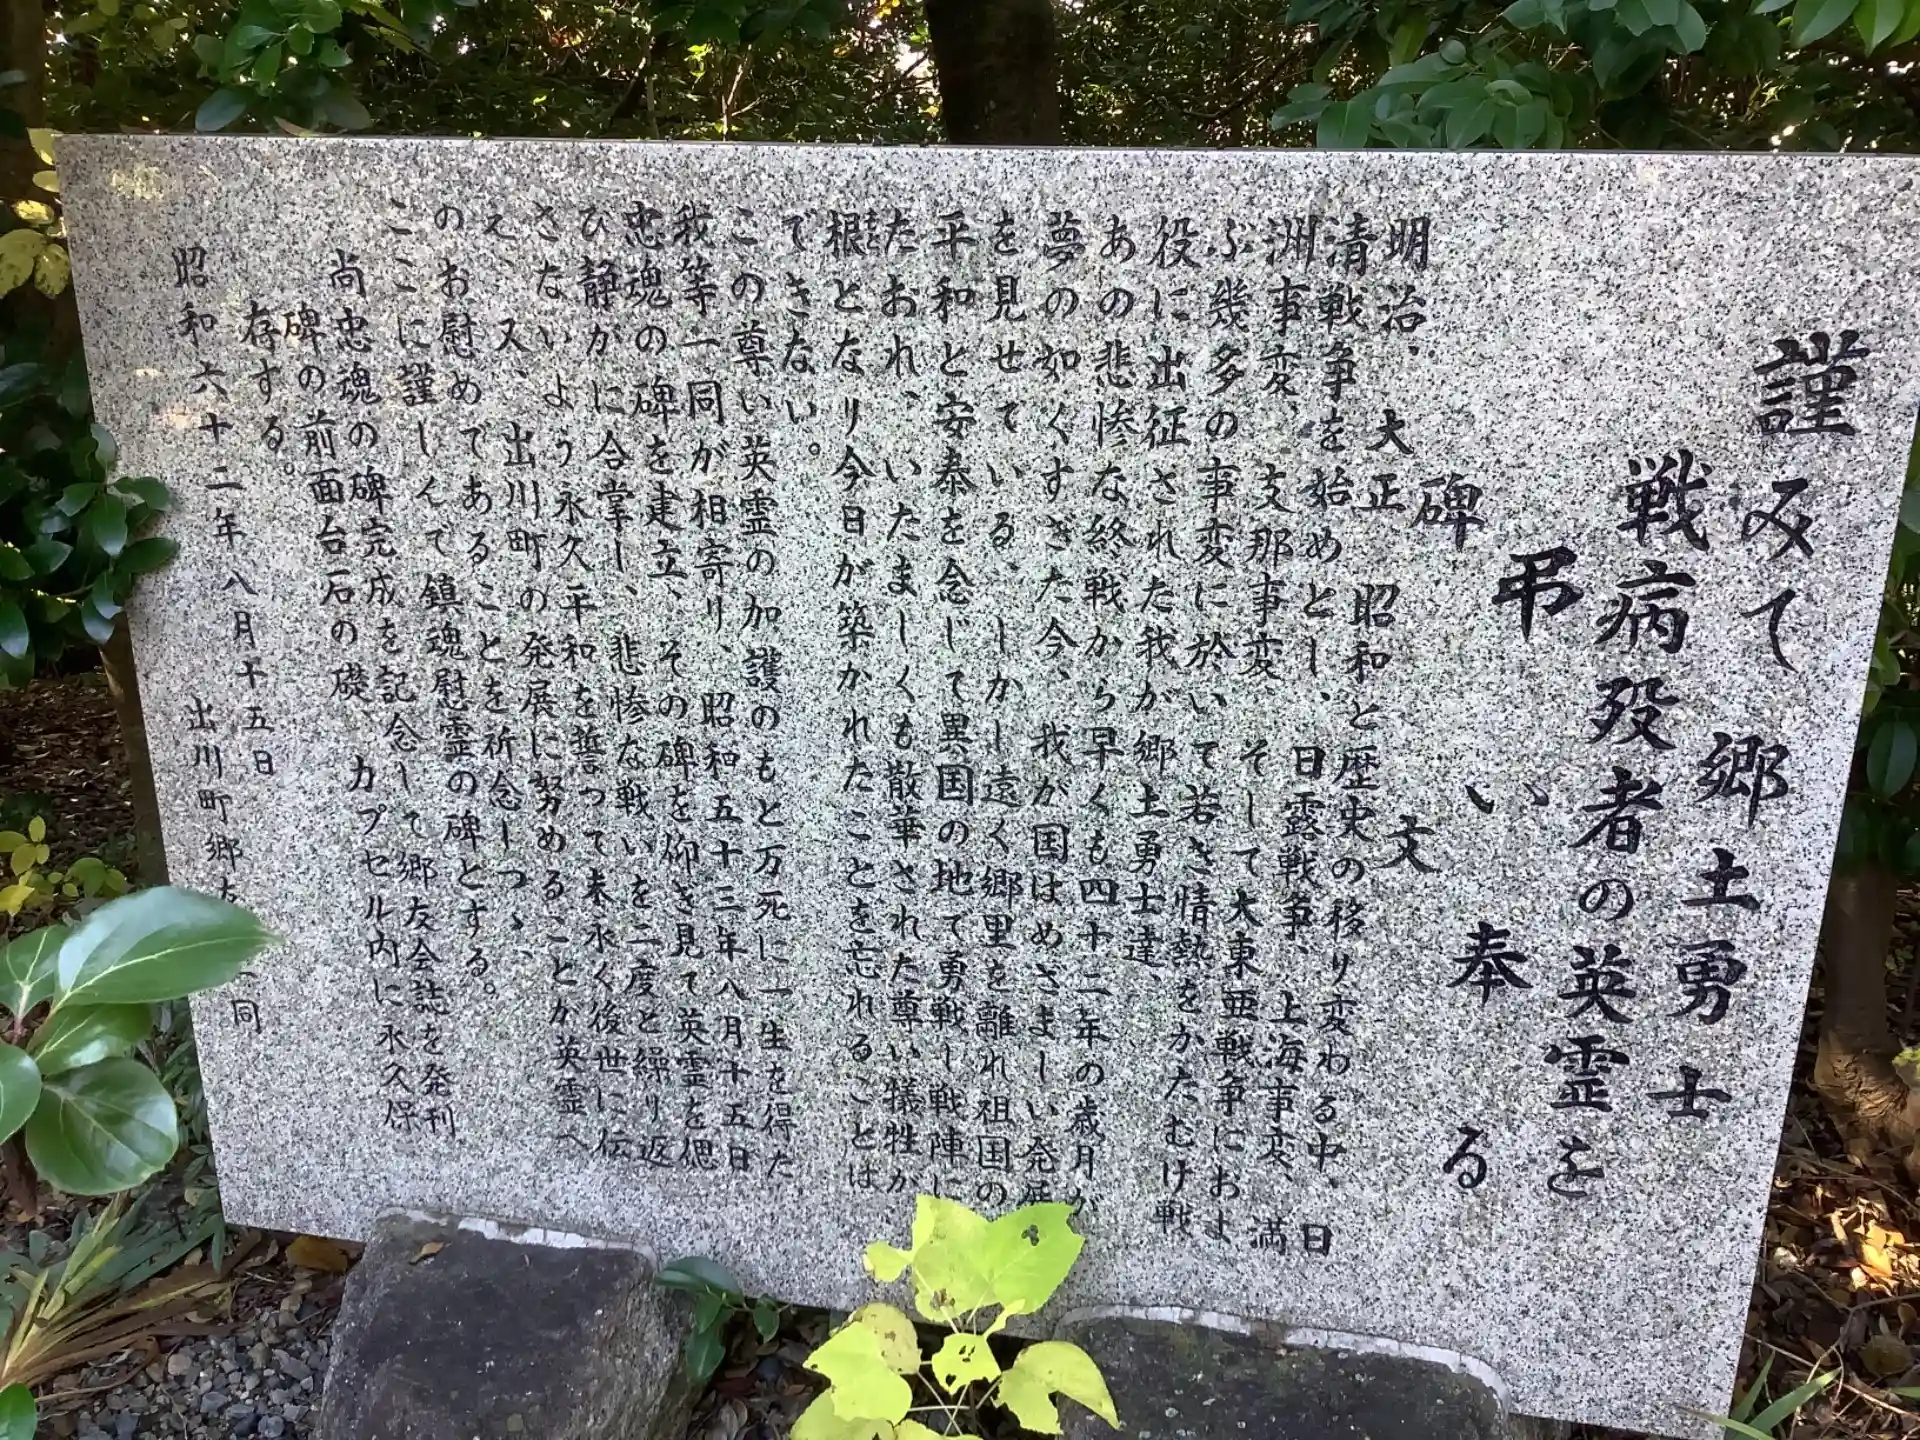 謹みて郷土勇士
戦病歿者の英霊を
弔い奉る
碑文
明治、大正、昭和と歴史の移り変わる中、日
清戦争を始めとし、日露戦争、上海事変、満
洲事変、支那事変、そして大東亜戦争におよ
ぶ幾多の事変に於いて若さ情熱をかたむけ戦
役に出征された我が郷土勇士達
あの悲惨な終戦から早くも四十二年の歳月が
夢の如くすぎた今、我が国はめざましい発展
を見せている、しかし遠く郷里を離れ祖国の
平和と安泰を念じて異国の地で勇戦し戦陣に
たおれ、いたましくも散華された尊い犠牲が
根となり今日が築かれたことを忘れることは
できない。
この尊い英霊の加護のもと万死に一生を得た
我等一同が相寄り、昭和五十三年八月十五日
忠魂の碑を建立、その碑を仰ぎ見て英霊を偲
び静かに合掌し、悲惨な戦いを二度と繰り返
さないよう永久平和を誓って末永く後世に伝
え、又、出川町の発展に努めることが英霊へ
のお慰めであることを祈念しつゝ、
ここに謹しんで鎮魂慰霊の碑とする。
尚忠魂の碑完成を記念して郷友会誌を発刊
碑の前面台石の礎、カプセル内に永久保
存する。
昭和六十二年八月十五日
出川町郷友 一同